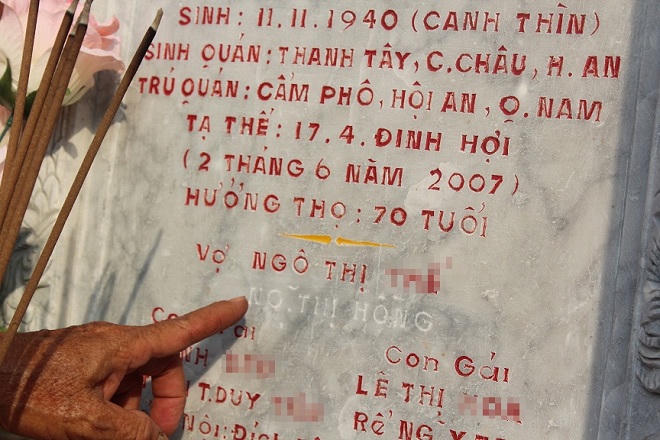 SINH: 11.11.1940 (CANH THÌN)
SINH QUÁN: THANH TÂY, C.CHÂU, H. AN
TRÚ QUÁN: CẨM PHÔ, HỘI AN, Q. NAM
TẠ THẾ: 17.4. ĐINH HỢI
(2 THÁNG 6 NĂM 2007)
HƯỞNG THỌ: 70 TUỔI
VỢ NGÔ THỊ
THỊ HỒNG
Con Gái
LÊ THỊ
T. DUY